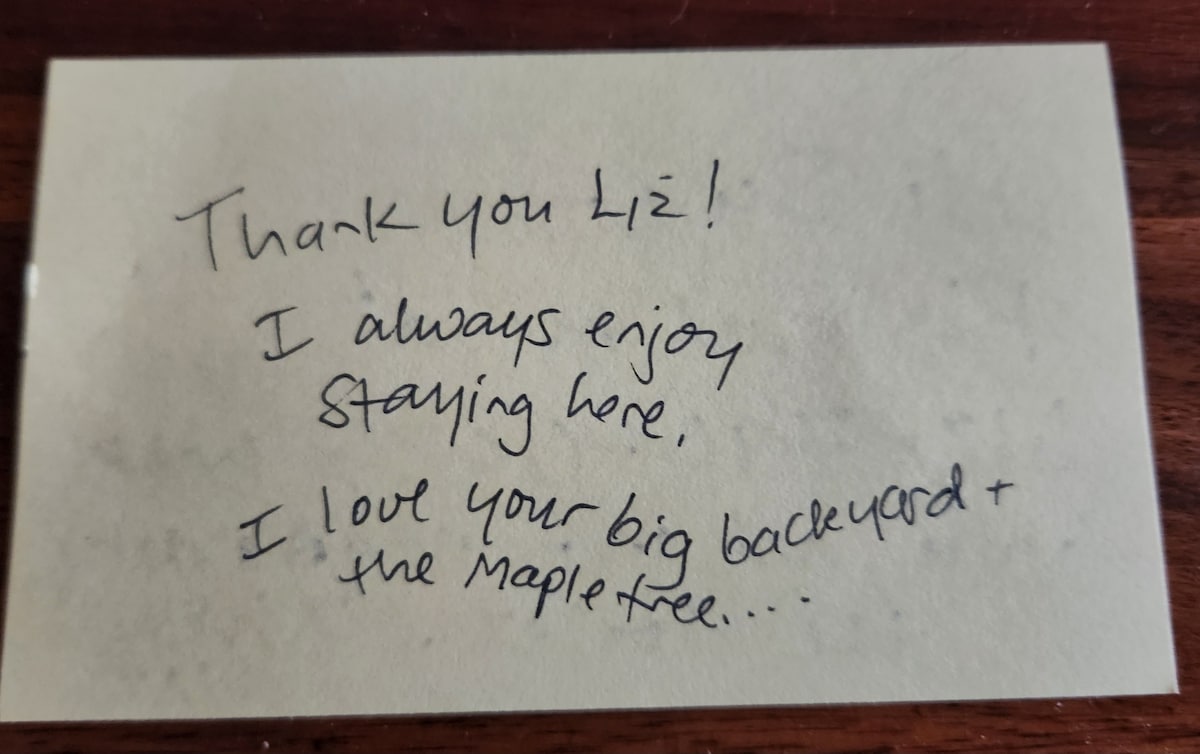 Thank you Liz!
I always enjoy
staying here.
I love your big backyard +
the Maple tree....